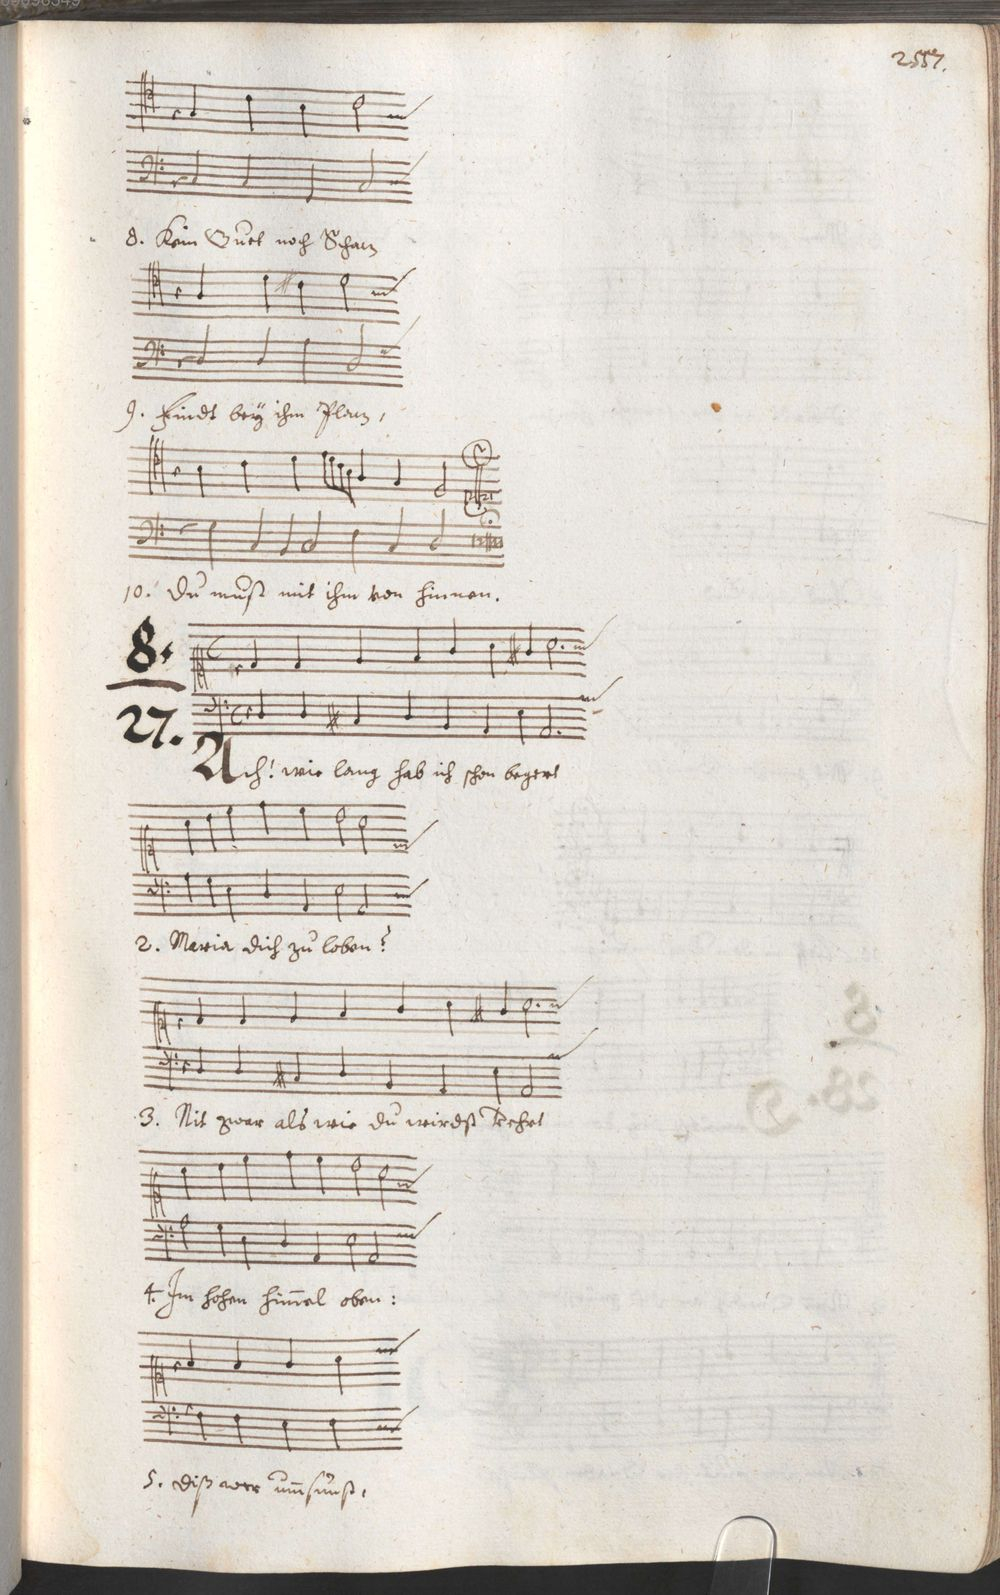 2557.
8. Kein Guet noch Schaz
9. Findt bey ihm Plaz,
10. Du must mit ihm von hinnen.
8.
27.
Ach! wie lang hab ich schon begert
2. Maria dich zu loben?
3. Nit zwar als wie du wirdst verehrt
4. Im hohen him̄el oben:
5. Diß wer um̄sunst,